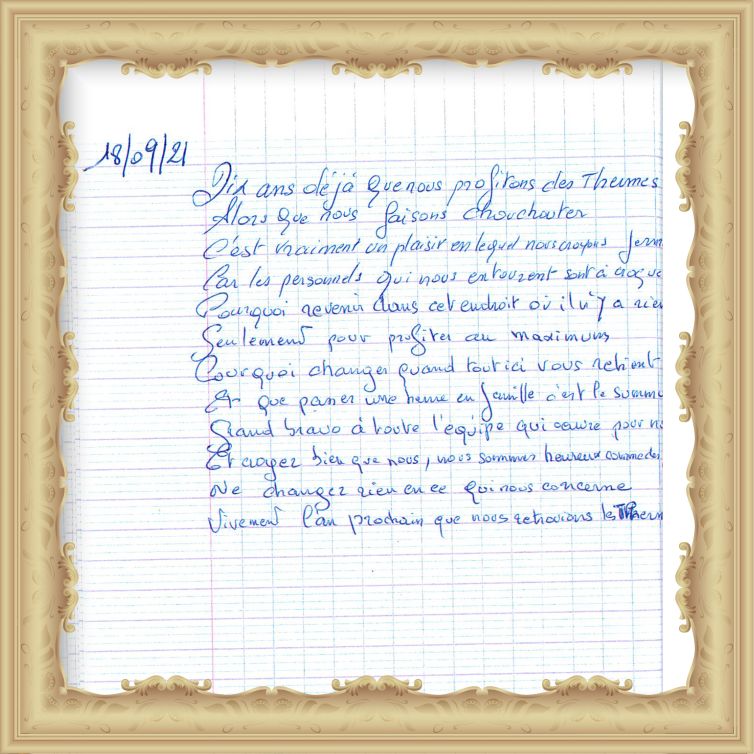 18/09/21
Dix ans déjà que nous profitons des Thermes
Alors que nous faisons chouchouter
C'est vraiment un plaisir en lequel nous
Car les personnels qui nous entourent sont à croque
Pourquoi revenir dans cet endroit où il n'y a rien
Seulement pour profiter au maximum
Pourquoi changer quand tout ici vous retient
Et que passer une heure en famille c'est le summu
Grand bravo à toute l'équipe qui oeuvre pour n
Et croyez bien que nous, nous sommes heureux comme des
Ne changez rien en ce qui nous concerne
Vivement l'an prochain que nous retrouvions les Therm